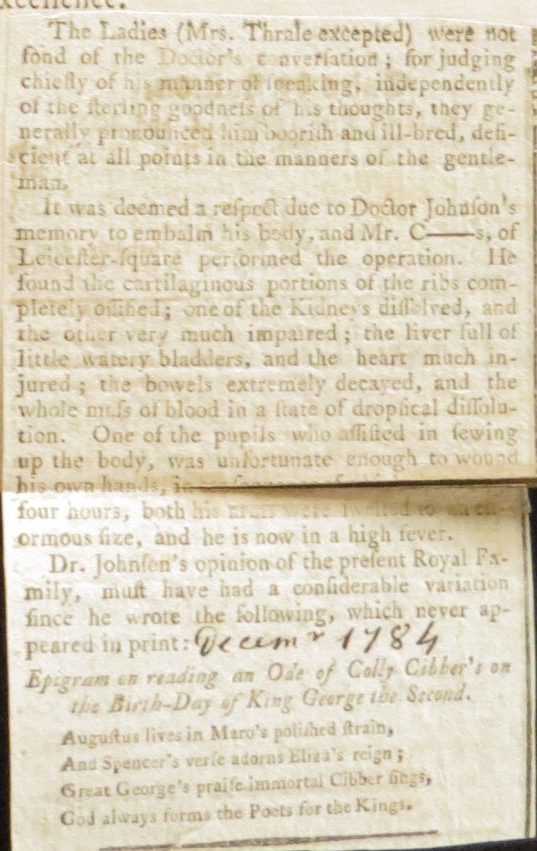 The Ladies (Mrs. Thrale excepted) were not
fond of the Doctor's conversation; for judging
chiefly of his manner of speaking, independently
of the sterling goodness of his thoughts, they ge-
nerally pronounced him boorish and ill-bred, defi-
cient at all points in the manners of the gentle-
man.
It was deemed a respect due to Doctor Johnson's
memory to embalm his body, and Mr. C——s, of
Leicester-square performed the operation. He
found the cartilaginous portions of the ribs com-
pletely ossified; one of the Kidneys dissolved, and
the other very much impaired; the liver full of
little watery bladders, and the heart much in-
jured; the bowels extremely decayed, and the
whole mass of blood in a state of dropsical dissolu-
tion. One of the pupils who assisted in sewing
up the body, was unfortunate enough to wound
his own hands, in
four hours, both his arms were swelled to an en-
ormous size, and he is now in a high fever.
Dr. Johnson's opinion of the present Royal Fa-
mily, must have had a considerable variation
since he wrote the following, which never ap-
peared in print: Decemr 1784
Epigram on reading an Ode of Colly Cibber's on
the Birth-Day of King George the Second.
Augustus lives in Maro's polished strain,
And Spencer's verse adorns Eliza's reign;
Great George's praise immortal Cibber sings,
God always forms the Poets for the Kings.